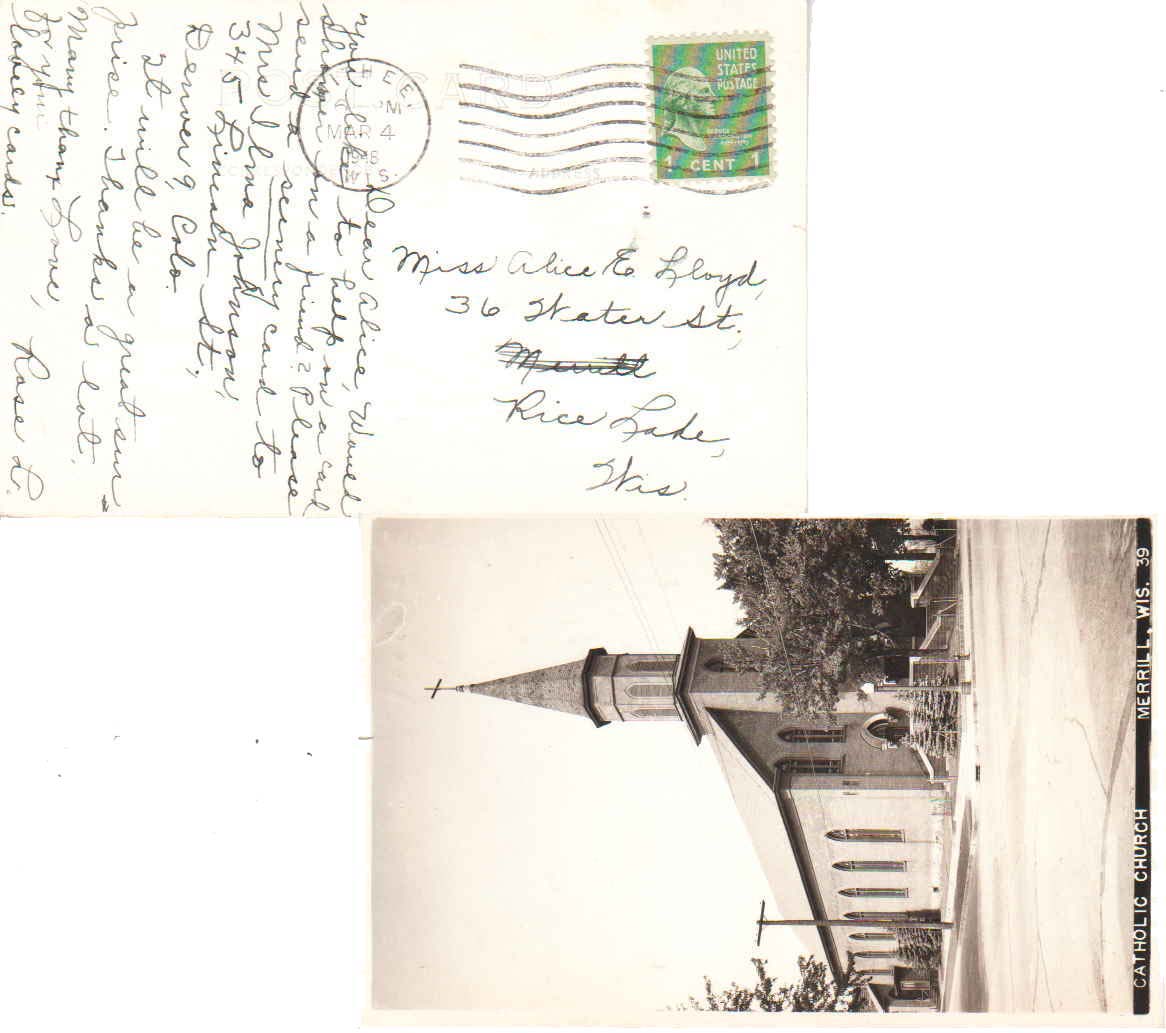 POST CARD
THE
M
MAR 4
WIS.
UNITED
STATES
POSTAGE
1 CENT 1
ADDRESS
Miss Alice E. Lloyd,
36 Water St.,
Merrill
Rice Lake,
Wis.
Dear Alice, Would
you like to help on a card
shower on a friend? Please
send a scenery card to
Mrs Ilma Johnson,
345 Lincoln St.,
Denver 9, Colo.
It will be a great sur-
prise. Thanks a lot.
Many thanx Love, Rose L.
for your
lovely cards.
CATHOLIC CHURCH MERRILL, WIS. 39